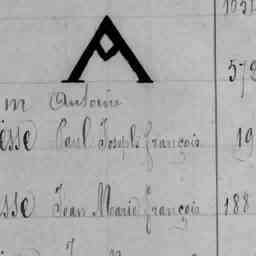 A
m Antoine
esse Paul Joseph françois 19
sse Jean Marie françois 188